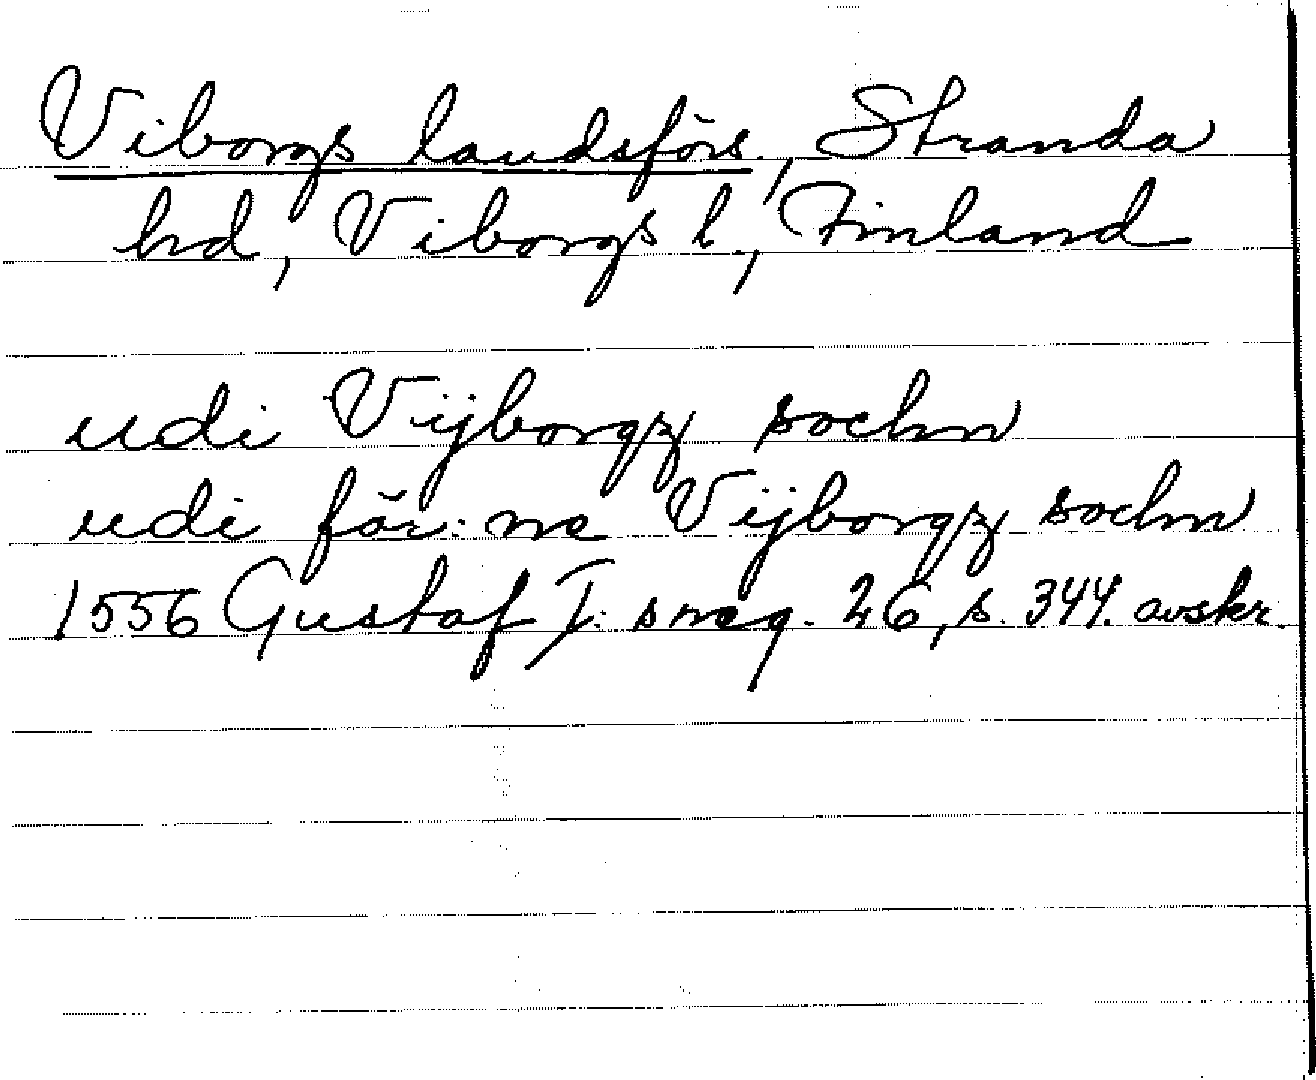 Viborgs landsförs., Stranda
hd, Viborgs l., Finland
udi Vijborgz sochn
udi för:ne Vijborgz sochn
1556 Gustaf I:s reg. 26, s. 344. avskr.